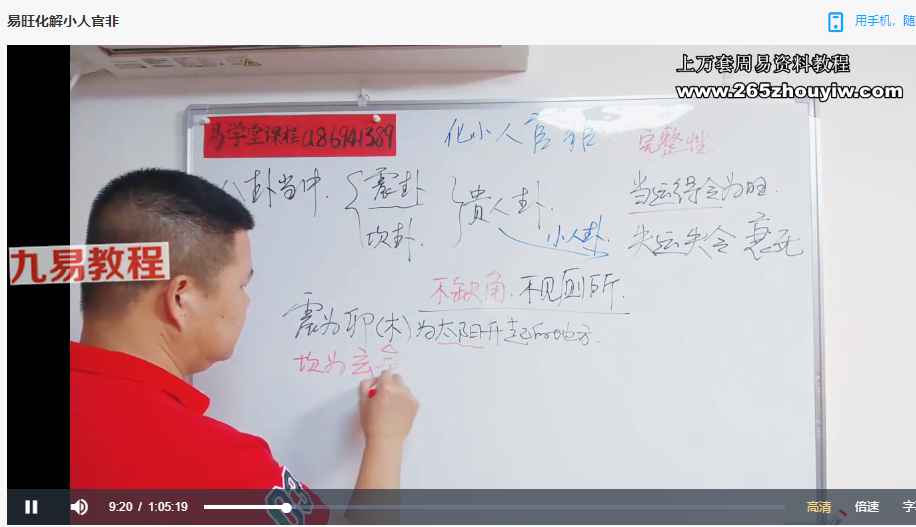 易旺化解小人官非
用手机，随
上万套周易资料教程
www.265zhouyiw.com
易学堂课桂
化小人官非 完整性
八卦当中. 震卦 贵人卦. 当运得令为旺.
坎卦. 小人卦. 失运失令 衰死
九易教程
不缺角. 不见厕所.
震为卯(木)为太阳升起的地方.
坎为玄
9:20 / 1:05:19
高清 倍速 字